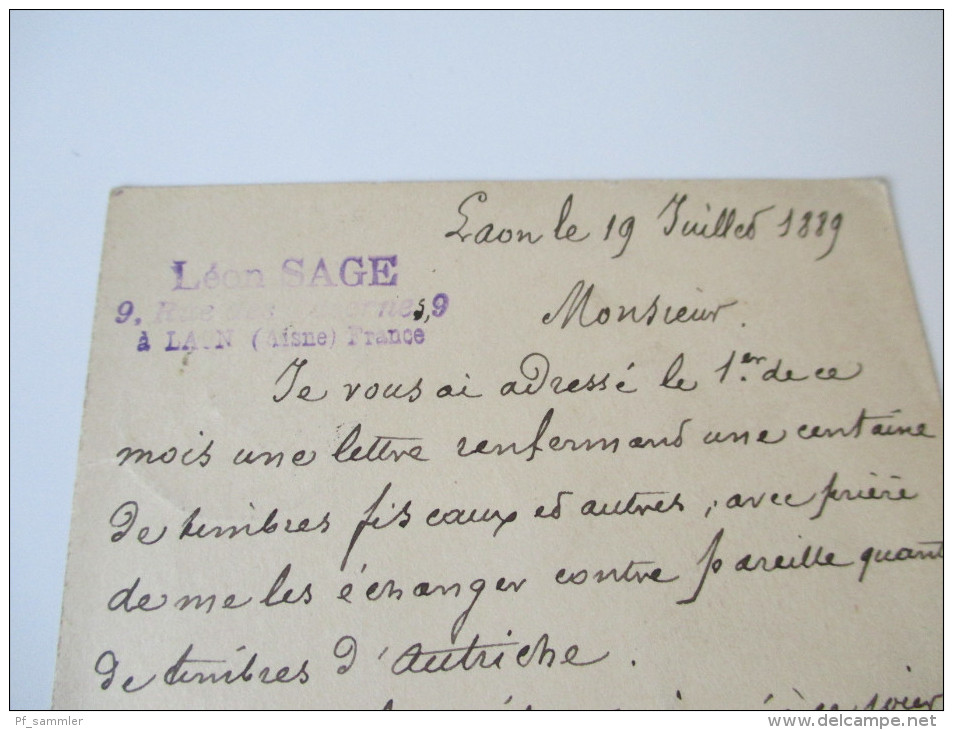 Laon le 19 Juillet 1889
Léon SAGE
9, Rue des s, 9
à LAON (Aisne) France
Monsieur.
Je vous ai adressé le 1.er de ce
mois une lettre renfermant une centaine
de timbres fiscaux et autres, avec prière
de me les échanger contre pareille quant
de timbres d'Autriche.
jour
Pf_sammler
www.delcampe.net